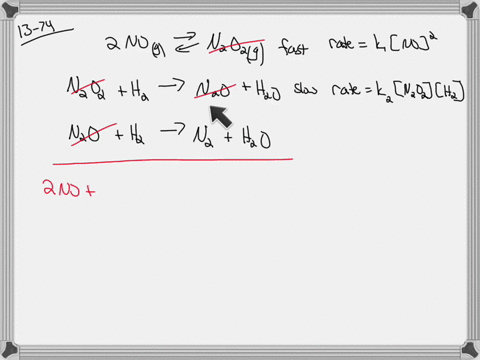 13-74
2 NO(g) ⇌ N₂O₂(g) fast rate = k₁[NO]²
N₂O₂ + H₂ → N₂O + H₂O slow rate = k₂[N₂O₂][H₂]
N₂O + H₂ → N₂ + H₂O
2NO +